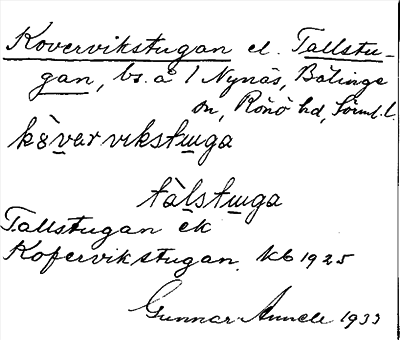 Kovervikstugan el. Tallstu-
gan, bs. å 1 Nynäs, Bälinge
sn, Rönö hd, Sörml. l.
kåvarvikstuga
tàlstuga
Tallstugan ek
Kofervikstugan. kb 1925
Gunnar Annell 1933